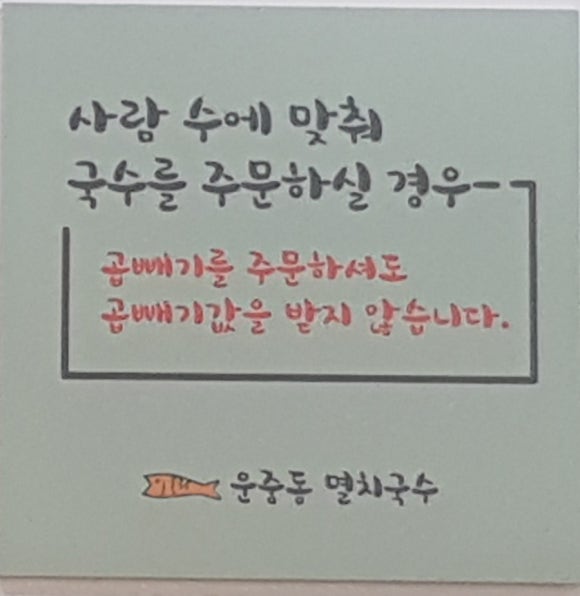 사람 수에 맞춰
국수를 주문하실 경우
곱빼기를 주문하셔도
곱빼기값을 받지 않습니다.
운중동 멸치국수